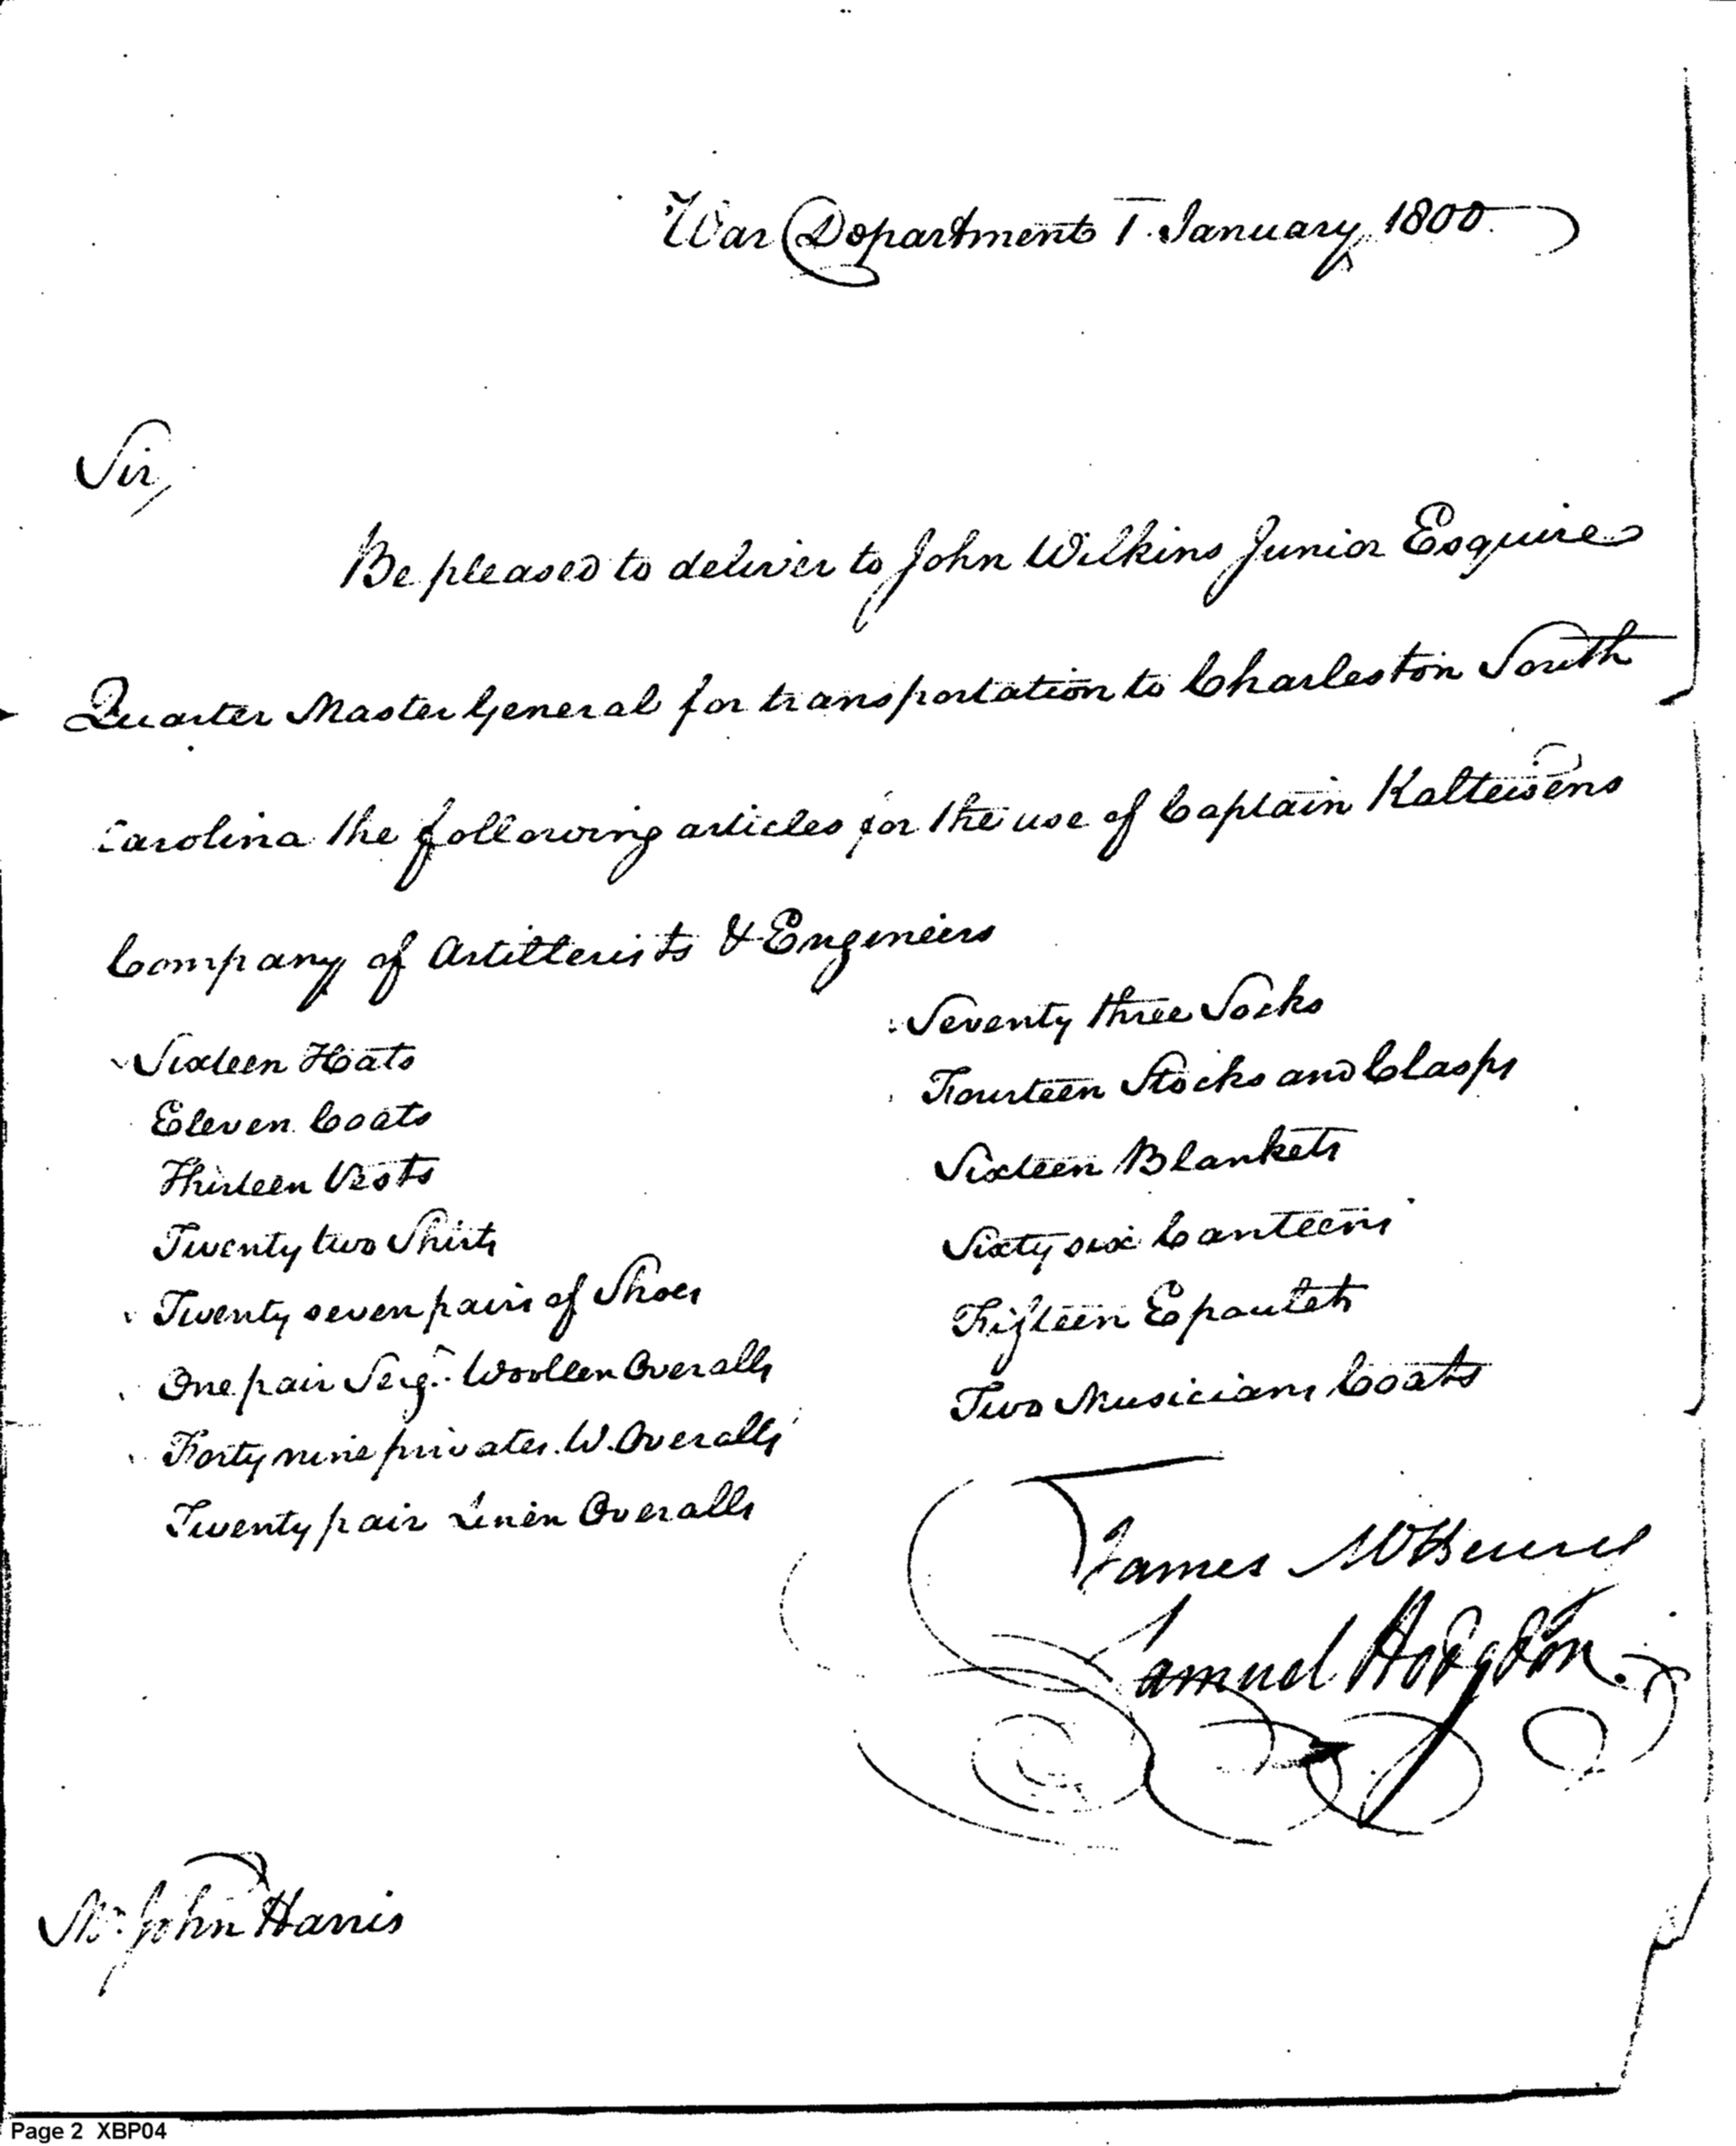 War Department 1. January, 1800.
Sir,
Be pleased to deliver to John Wilkins Junior Esquire
Quarter Master General for transportation to Charleston South
Carolina the following articles for the use of Captain Kalteisens
Company of Artillerists & Engineers
Sixteen Hats
Eleven Coats
Thirteen Vests
Twenty two Shirts
Twenty seven pairs of Shoes
One pair Sergt. Woollen Overalls
Forty nine privates W. Overalls
Twenty pair Linen Overalls
Seventy three Socks
Fourteen Stocks and Clasps
Sixteen Blankets
Sixty six Canteens
Fifteen Epaulets
Two Musicians Coats
James McHenry
Samuel Hodgdon.
Mr. John Harris
Page 2 XBP04